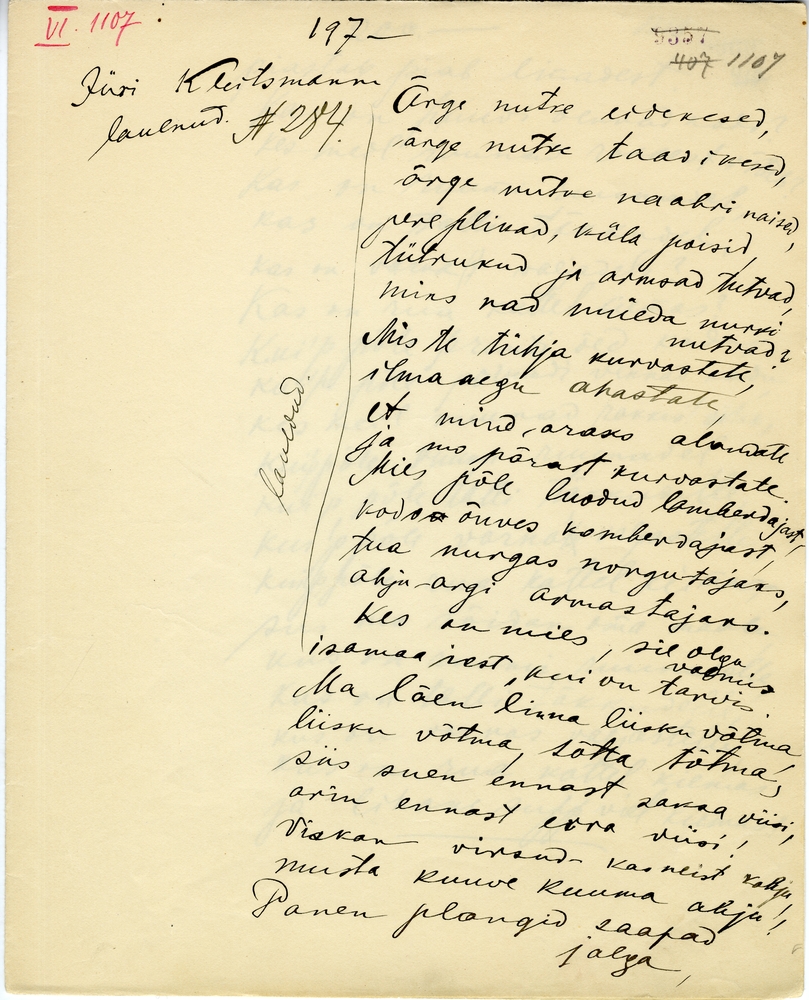 VI. 1107
197
9357
407 1107
Jüri Kleitsmann
laulnud. #284.
Ärge nutke eidekesed,
ärge nutke taadikesed,
ärge nutke naabri naised,
pere plikad, küla poisid,
tütrukud ja armsad tutvad,
miks nad müeda nurki
nutvad?
Mis te tühja kurvastate,
ilmaaegu ahastate,
et mind araks alandate
ja mo pärast kurvastate.
Mies pole luodud lamberdajast,
kodo õuves komberdajast,
tua nurgas norgutajaks,
ahju-argi armastajaks.
Kes on mies, sie olgu
valmis
isamaa iest, kui on tarvis.
laulnud.
Ma läen linna liisku võtma,
liisku võtma, sõtta tõtma,
siis suen ennast saksa viisi,
arin ennast erra viisi!
Viskan virsud - kas neist kahju,
musta kuuve kuuma ahju!
Panen plangid saapad
jalga,